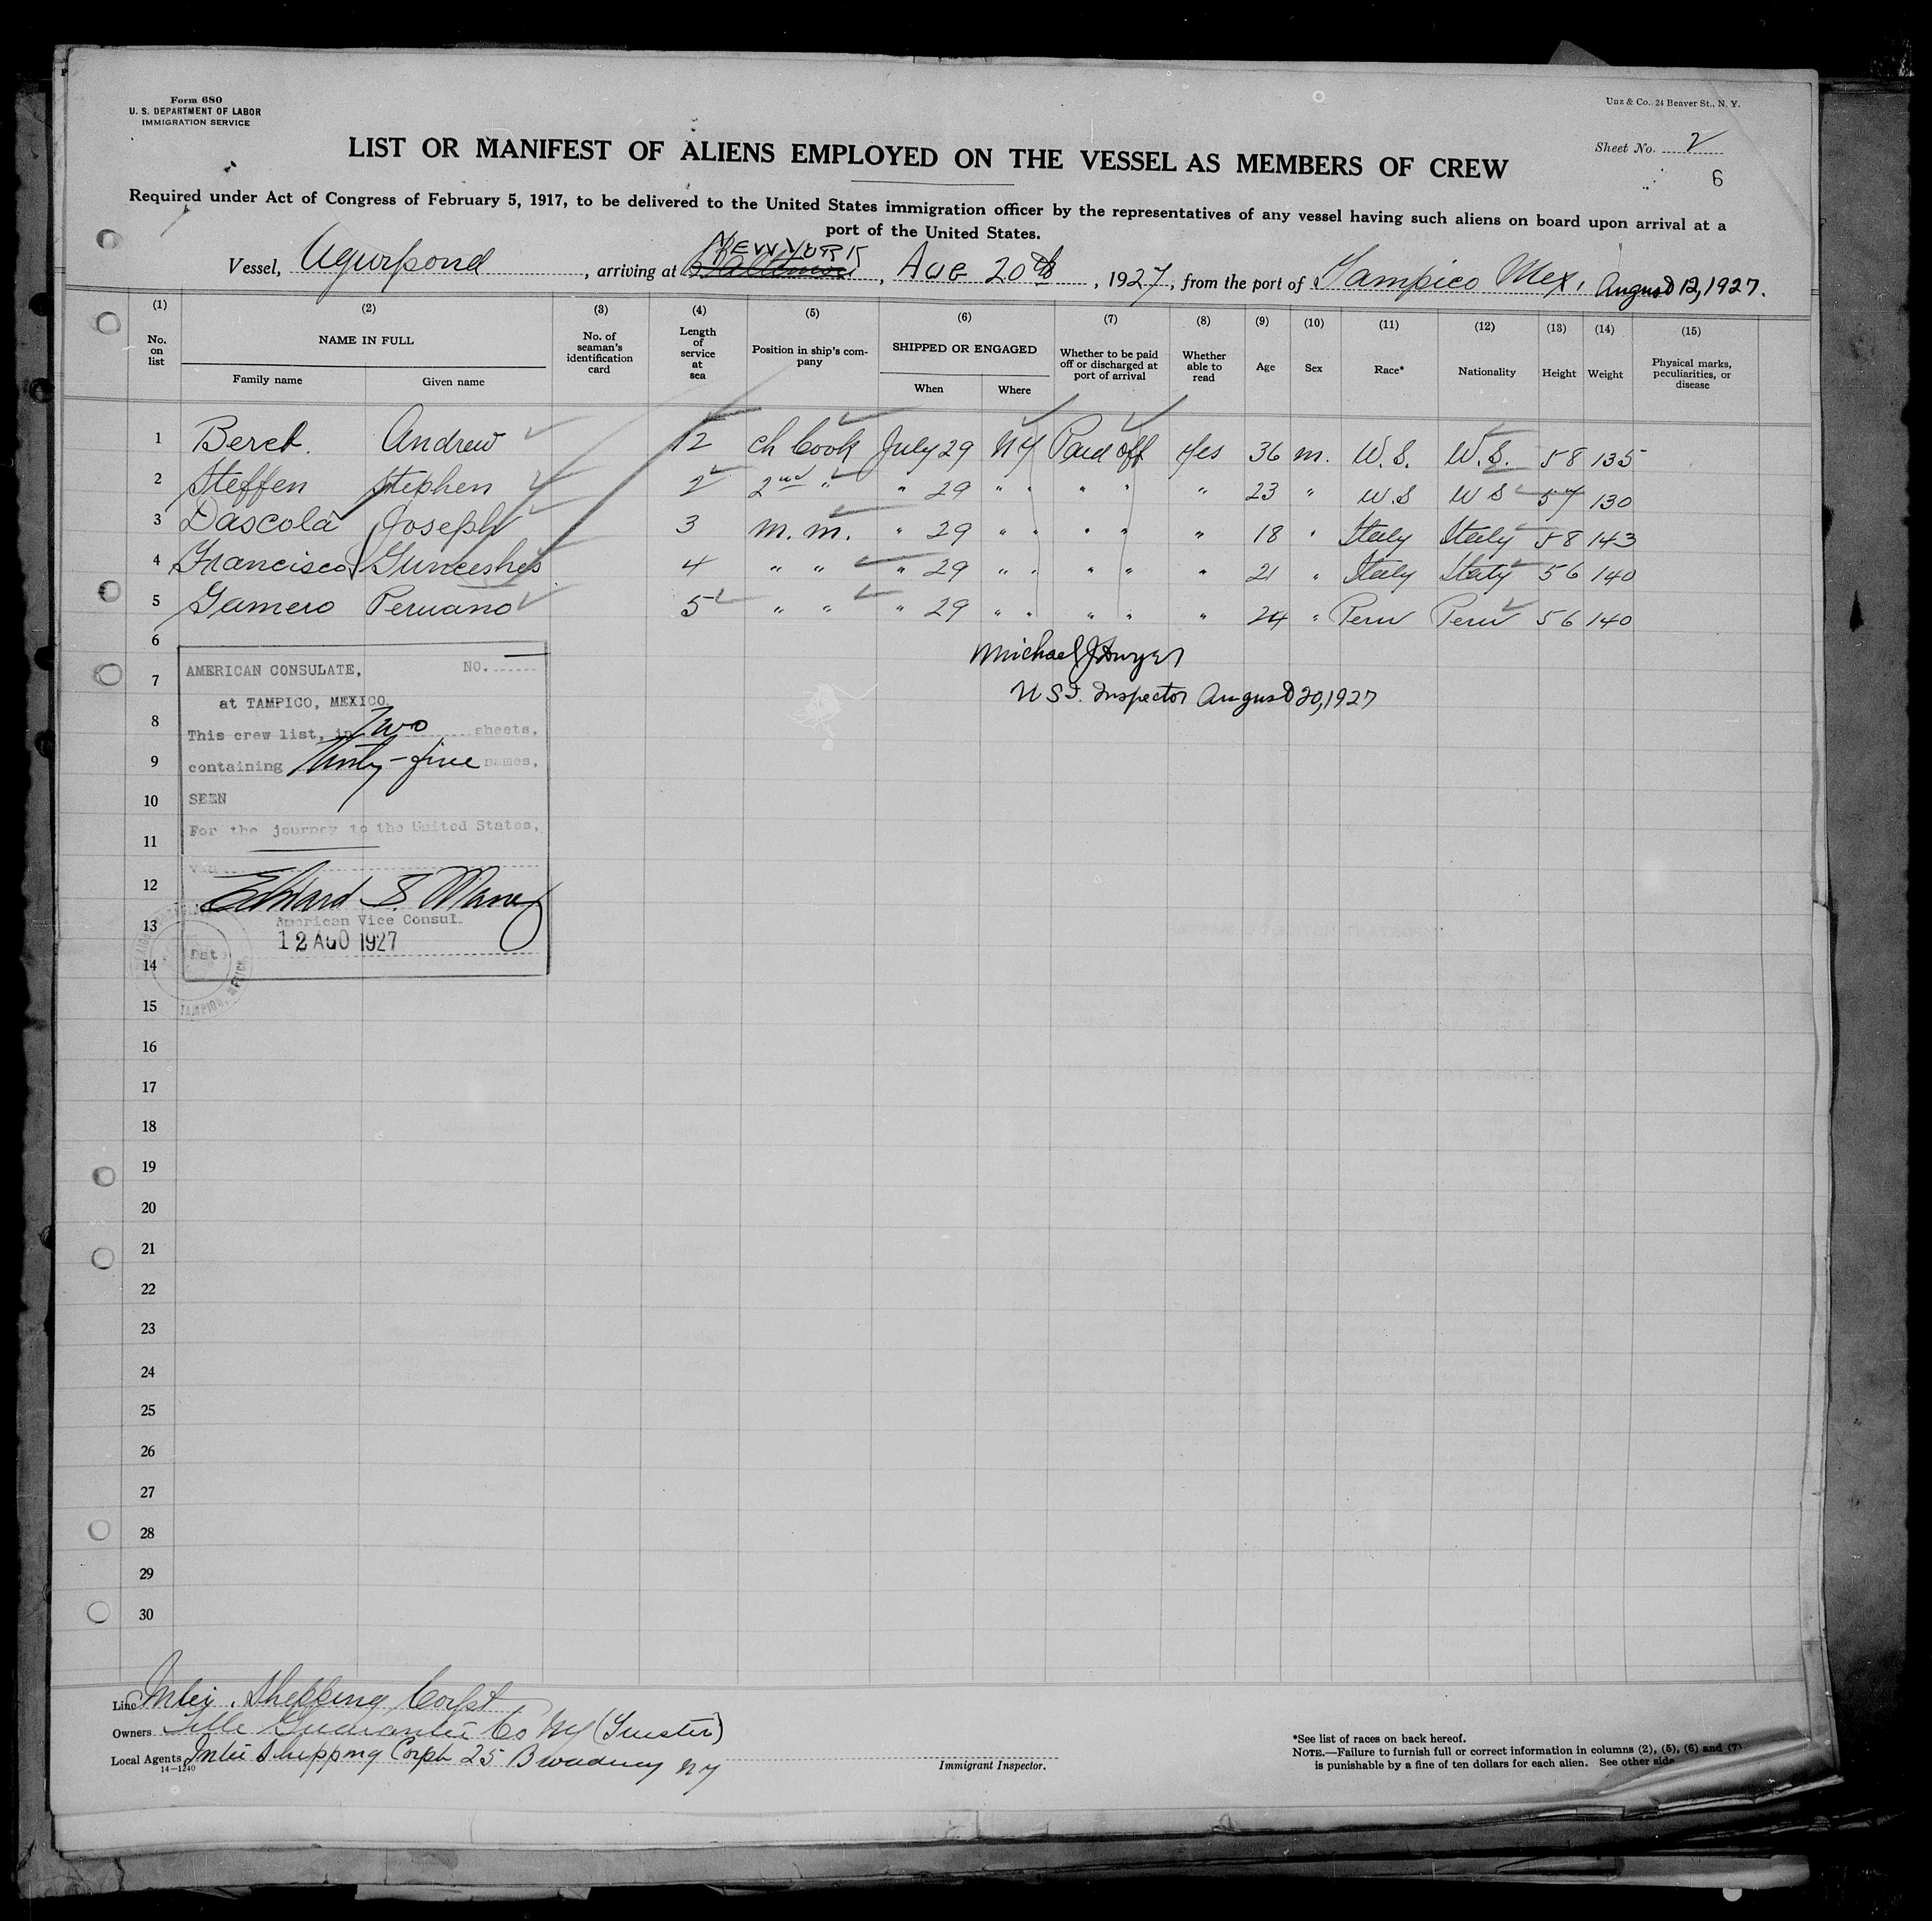 Form 680
U. S. DEPARTMENT OF LABOR
IMMIGRATION SERVICE
Unz & Co., 24 Beaver St., N. Y.
Sheet No. 2
6
LIST OR MANIFEST OF ALIENS EMPLOYED ON THE VESSEL AS MEMBERS OF CREW
Required under Act of Congress of February 5, 1917, to be delivered to the United States immigration officer by the representatives of any vessel having such aliens on board upon arrival at a
port of the United States.
Vessel, Agwipond, arriving at NEW YORK, AUG 20th, 1927, from the port of Tampico Mex, August 12, 1927.
(1) (2) (3) (4) (5) (6) (7) (8) (9) (10) (11) (12) (13) (14) (15)
No. on list NAME IN FULL No. of seaman's identification card Length of service at sea Position in ship's company SHIPPED OR ENGAGED Whether to be paid off or discharged at port of arrival Whether able to read Age Sex Race* Nationality Height Weight Physical marks, peculiarities, or disease
Family name Given name When Where
1 Andrew 12 Ch Cook July 29 NY Paid off Yes 36 m. U.S. U.S. 58 135
2 Steffen Stephen 2 2nd " " 29 " " " " " 23 " U.S U S 57 130
3 Dascola Joseph 3 m. m. " 29 " " " " " 18 " Italy Italy 58 143
4 Francisco 4 " " " 29 " " " " " 21 " Italy Italy 56 140
5 Gamero Peruano 5 " " " 29 " " " " " 24 " Peru Peru 56 140
Michael J Dwyer
U S I. Inspector August 20, 1927
6
7
8
9
10
11
12
13
14
15
16
17
18
19
20
21
22
23
24
25
26
27
28
29
30
AMERICAN CONSULATE, NO.
at TAMPICO, MEXICO.
This crew list, in Two sheets,
containing Thirty-five names,
SEEN
For the journey to the United States,
via
Edward S. Maney
American Vice Consul.
Date 12 AGO 1927
TAMPICO, MEXICO
Line Inter. Shipping Corpt
Owners Title Guarantee Co NY (Trustee)
Local Agents Inter Shipping Corpt 25 Broadway NY
14—1240
Immigrant Inspector.
*See list of races on back hereof.
NOTE.—Failure to furnish full or correct information in columns (2), (5), (6) and (7)
is punishable by a fine of ten dollars for each alien. See other side